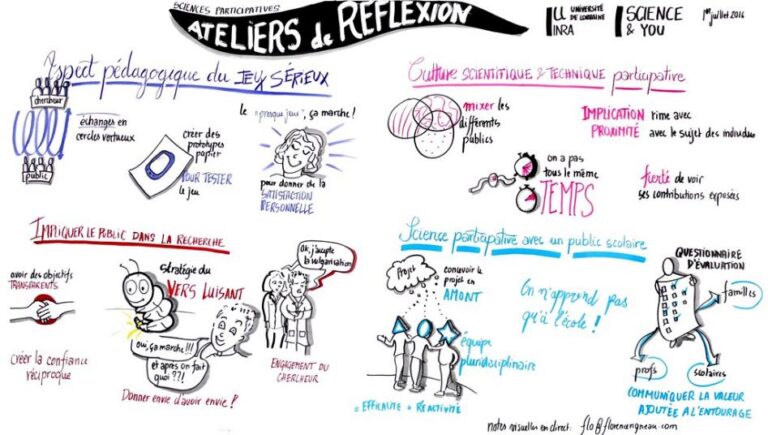 SCIENCES PARTICIPATIVES
ATELIERS de REFLEXION
UNIVERSITÉ
DE LORRAINE
INRA
SCIENCE
& YOU
1er juillet 2016
Aspect pédagogique du JEU SÉRIEUX
chercheur
échanges en
cercles vertueux
public
créer des
prototypes
papier
POUR TESTER
le jeu
le "presque jeu", ça marche !
pour donner de la
SATISFACTION
PERSONNELLE
Culture SCIENTIFIQUE & TECHNIQUE participative
mixer les
différents
publics
IMPLICATION rime avec
PROXIMITÉ avec le sujet des individus
on a pas
tous le même
TEMPS
fierté de voir
ses contributions exposées
IMPLIQUER LE PUBLIC DANS LA RECHERCHE
avoir des objectifs
TRANSPARENTS
créer la confiance
réciproque
stratégie du
VERS LUISANT
oui, ça marche !!!
et après on fait
quoi ??!
Donner envie d'avoir envie !
Ok, j'accepte
la vulgarisation
ENGAGEMENT DU
CHERCHEUR
Science participative avec un public scolaire
Projet
concevoir le
projet en
AMONT
équipe
pluridisciplinaire
= EFFICACITÉ + RÉACTIVITÉ
On n'apprend pas
qu'à l'école !
QUESTIONNAIRE
D'ÉVALUATION
familles
profs
scolaires
COMMUNIQUER LA VALEUR
AJOUTÉE À L'ENTOURAGE
notes visuelles en direct: flo@florencengneau.com